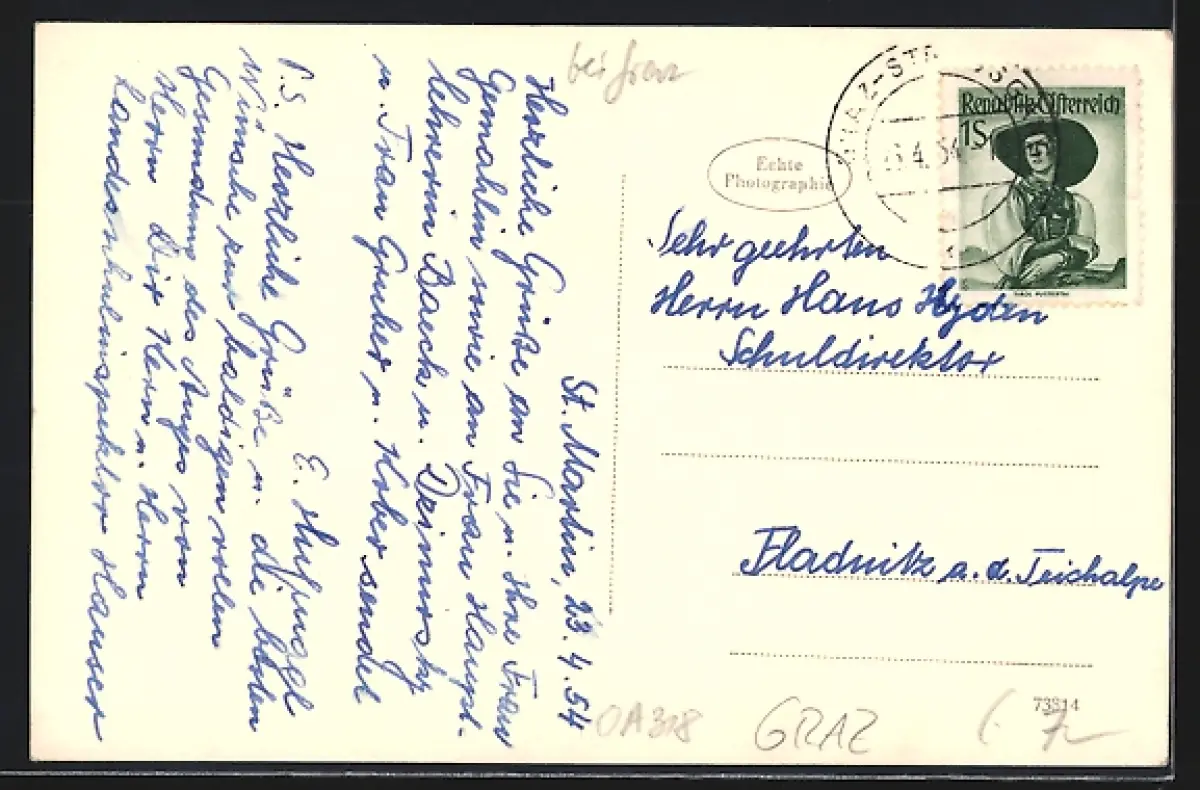 bei Graz
St. Martin, 23.4.54
Herzliche Grüße an Sie u. Ihre Frau
Gemahlin sowie an Frau Haupt-
lehrerin Baeck u.
u. Frau Gruber u. Huber sendet
E.
P.S. Herzliche Grüße u. die besten
Wünsche zur baldigen vollen
Gesundung des Auges von
Herrn Dir. Herrn u. Herrn
Landesschulinspektor Hauser
Echte
Photographie
GRAZ-STRASSGANG
23.4.54
Republik Österreich
1S
TIROL PUSTERTAL
Sehr geehrten
Herrn Hans Hyden
Schuldirektor
Fladnitz a. d. Teichalpe
73814
OA318
GRAZ
7